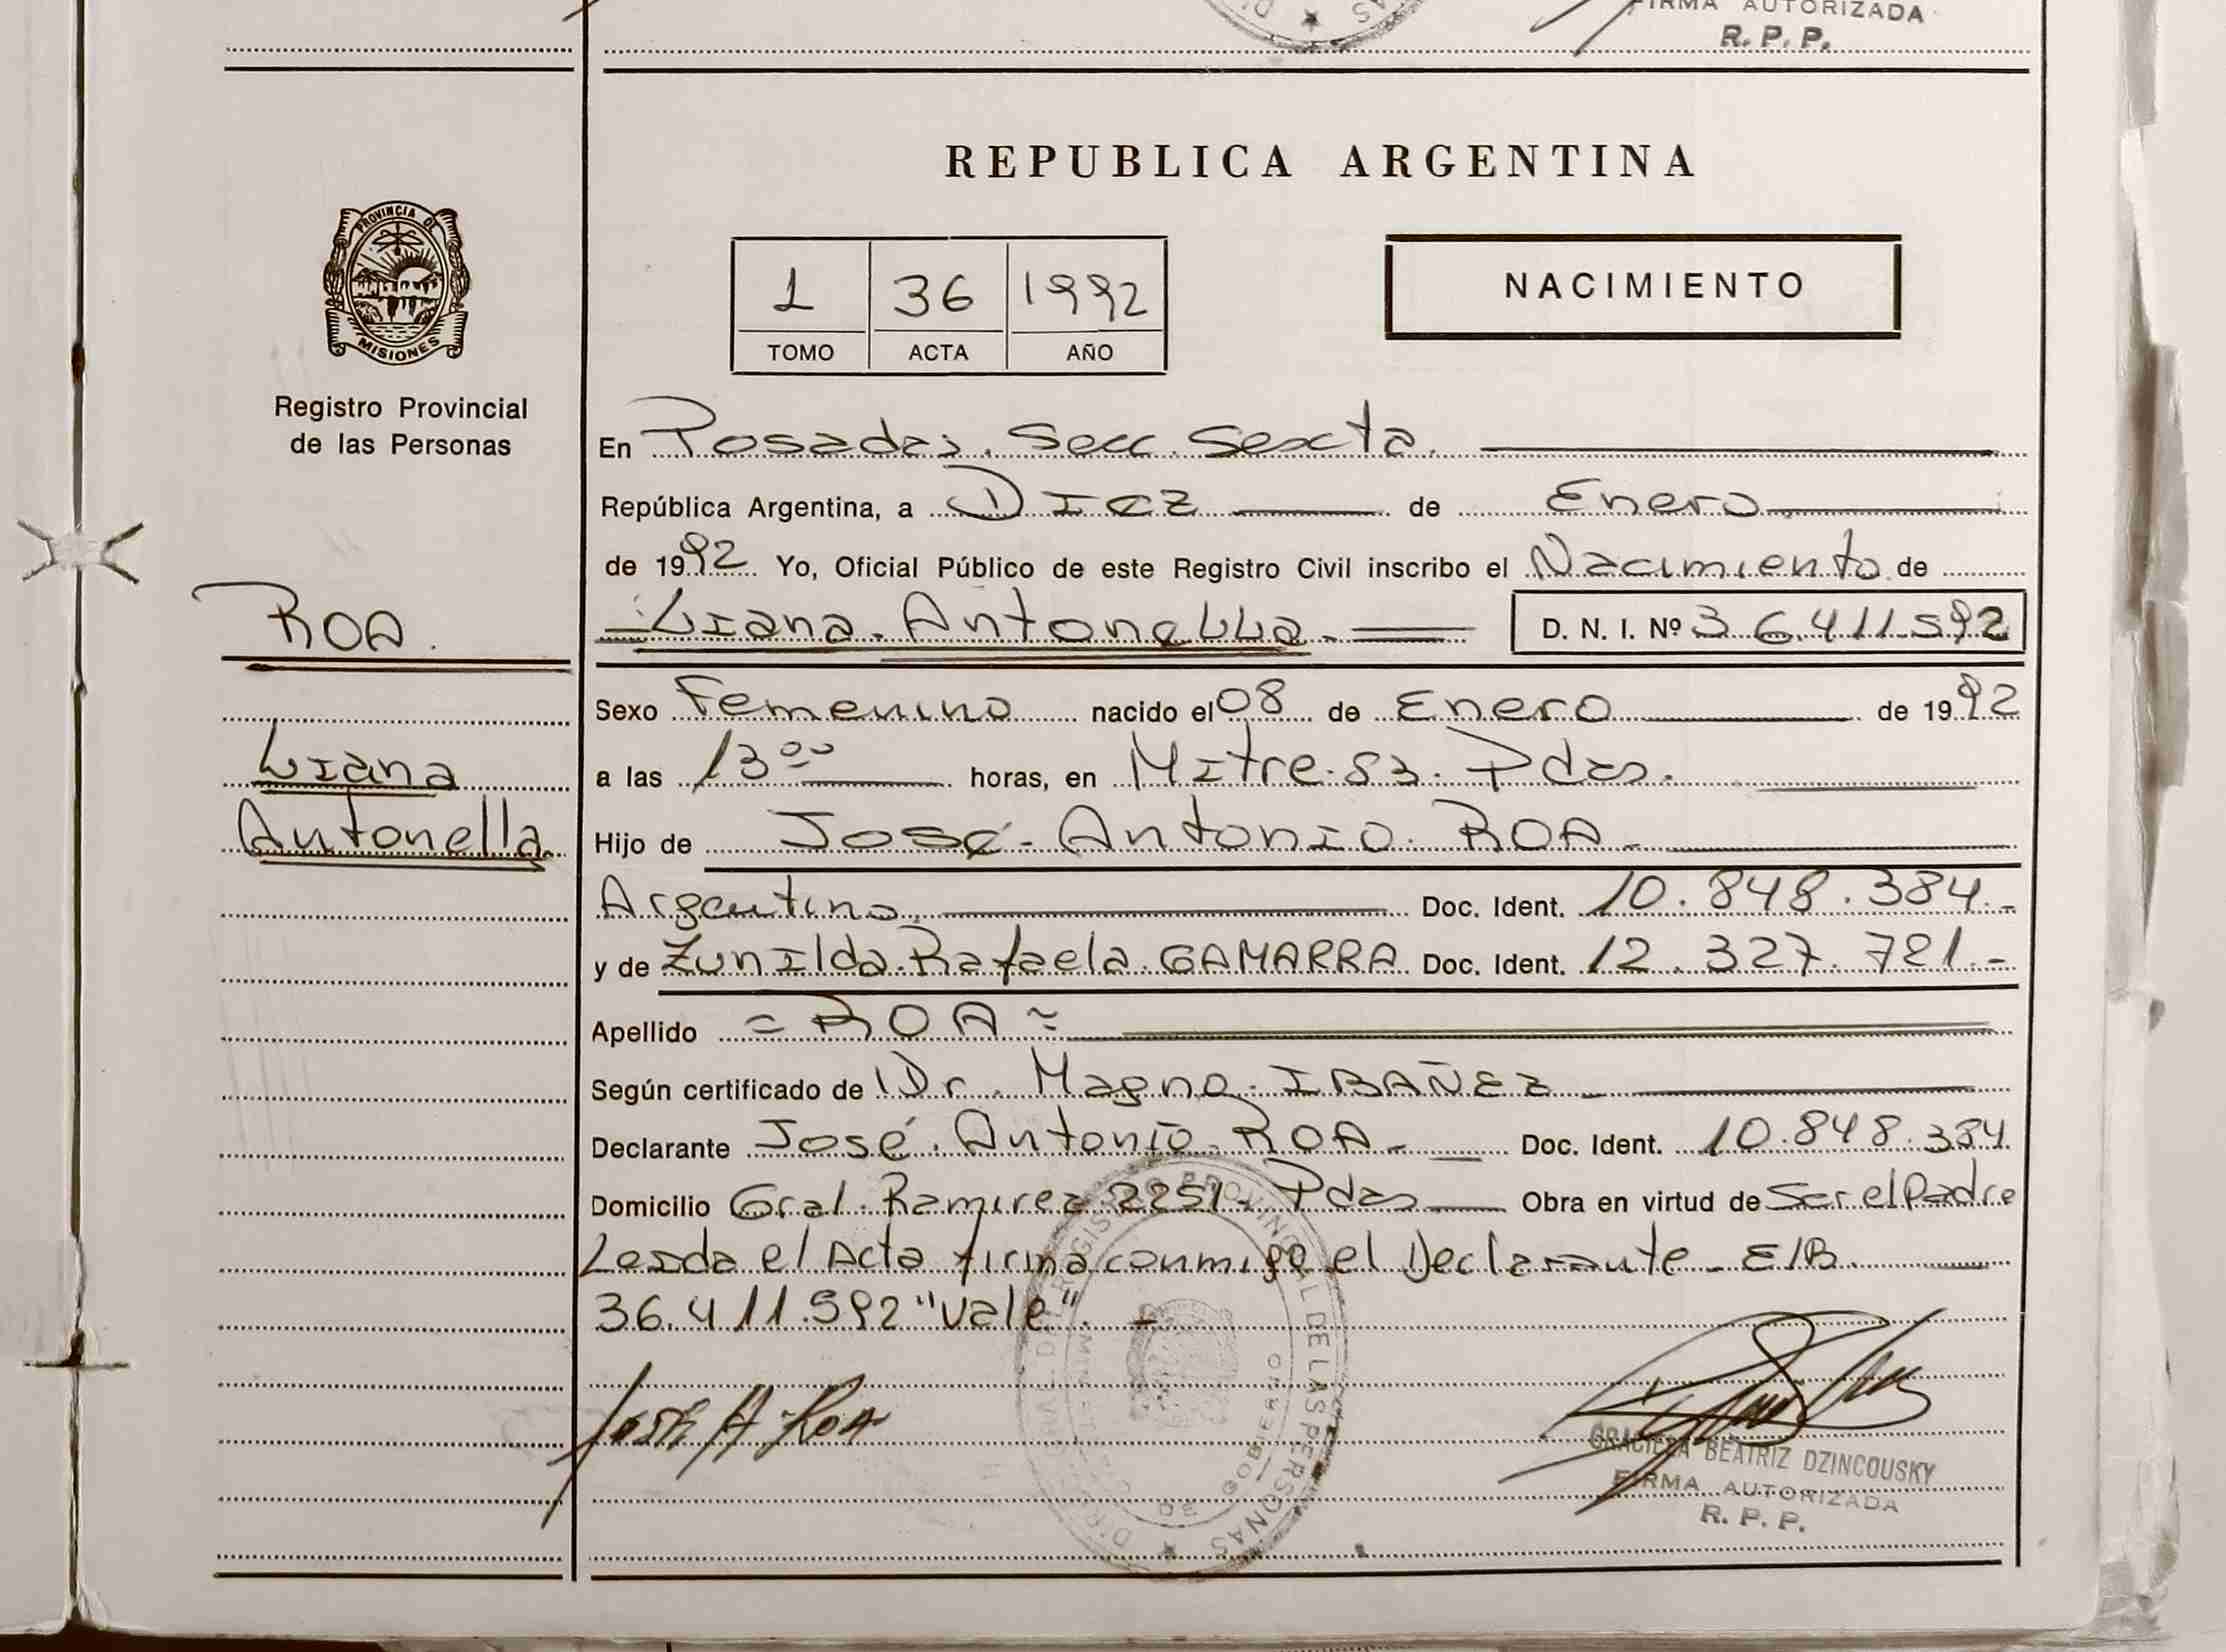 FIRMA AUTORIZADA
R. P. P.
REPUBLICA ARGENTINA
PROVINCIA DE
MISIONES
Registro Provincial
de las Personas
1 36 1992
TOMO ACTA AÑO
NACIMIENTO
En Posadas. Secc. Sexta.
República Argentina, a Diez de Enero
de 1992 Yo, Oficial Público de este Registro Civil inscribo el Nacimiento de
ROA.
Liana Antonella D. N. I. Nº 36.411.592
Sexo Femenino nacido el 08 de Enero de 1992
Liana
a las 13 oo horas, en Mitre 83. Pdas.
Antonella
Hijo de José Antonio ROA
Argentino Doc. Ident. 10.848.384.-
y de Zunilda Rafaela GAMARRA Doc. Ident. 12.327.721.-
Apellido = ROA =
Según certificado de Dr. Magno IBAÑEZ
Declarante José Antonio ROA - Doc. Ident. 10.848.384.
Domicilio Gral. Ramirez 2251 - Pdas Obra en virtud de Ser el Padre
Leida el Acta firma conmigo el Declarante - E/B.
36.411.592 "vale". -
José A Roa
REGISTRO PROVINCIAL DE LAS PERSONAS
GOBIERNO
GRACIELA BEATRIZ DZINCOUSKY
FIRMA AUTORIZADA
R. P. P.